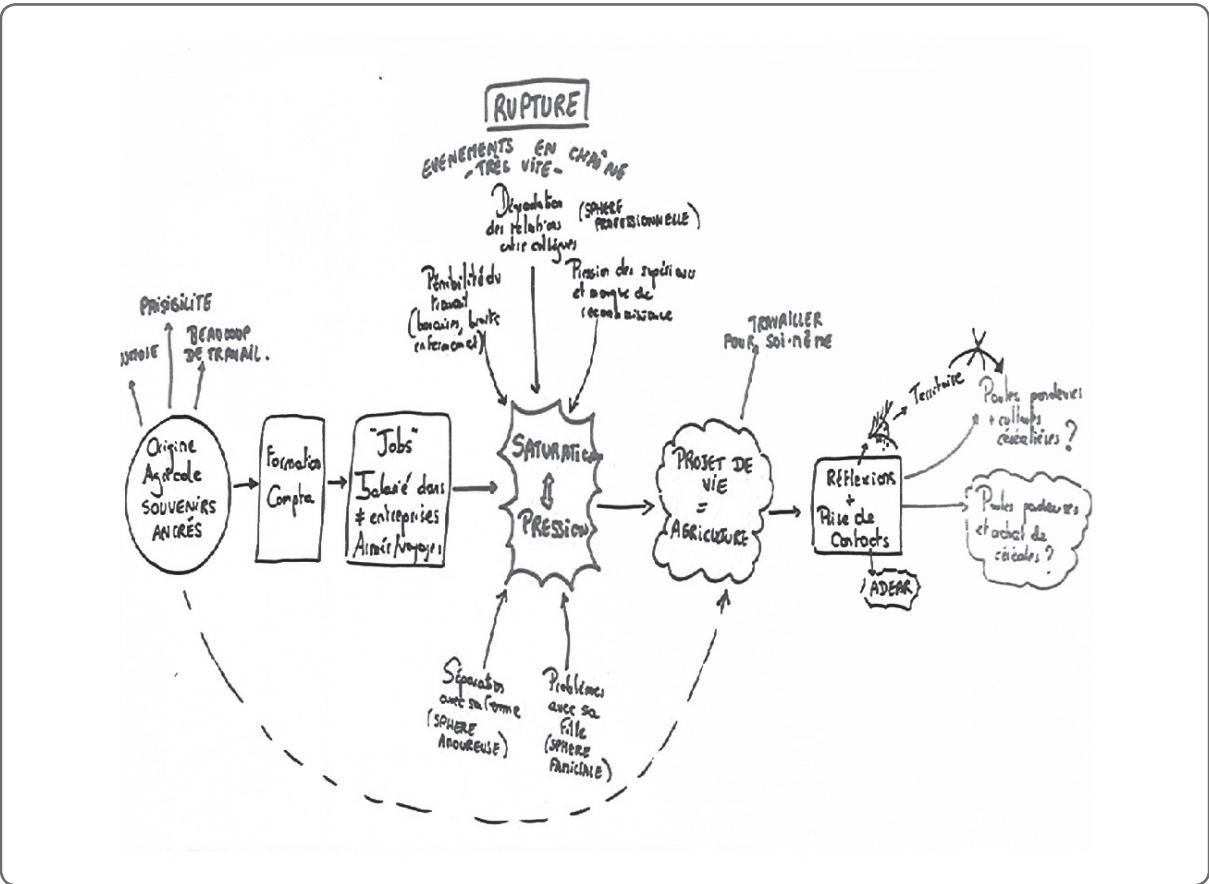 RUPTURE
EVENEMENTS EN CHAÎNE
- TRÈS VITE -
Dégradation
des relations
entre collègues
(SPHERE
PROFESSIONNELLE)
Pénibilité du
travail
(horaires, bruits
enfermement)
Pression des supérieurs
et manque de
reconnaissance
PAISIBILITE
BEAUCOUP
DE TRAVAIL.
Origine
Agricole
SOUVENIRS
ANCRÉS
Formation
Compta
"Jobs"
Salarié dans
≠ entreprises
Armée/voyages
SATURATION
PRESSION
TRAVAILLER
POUR SOI-MÊME
PROJET DE
VIE
=
AGRICULTURE
Réflexions
+
Prise de
Contacts
ADEAR
Territoire
Poules pondeuses
+ cultures
céréalières ?
Poules pondeuses
et achat de
céréales ?
Séparation
avec sa femme
(SPHERE
AMOUREUSE)
Problèmes
avec sa
Fille
(SPHERE
FAMILIALE)